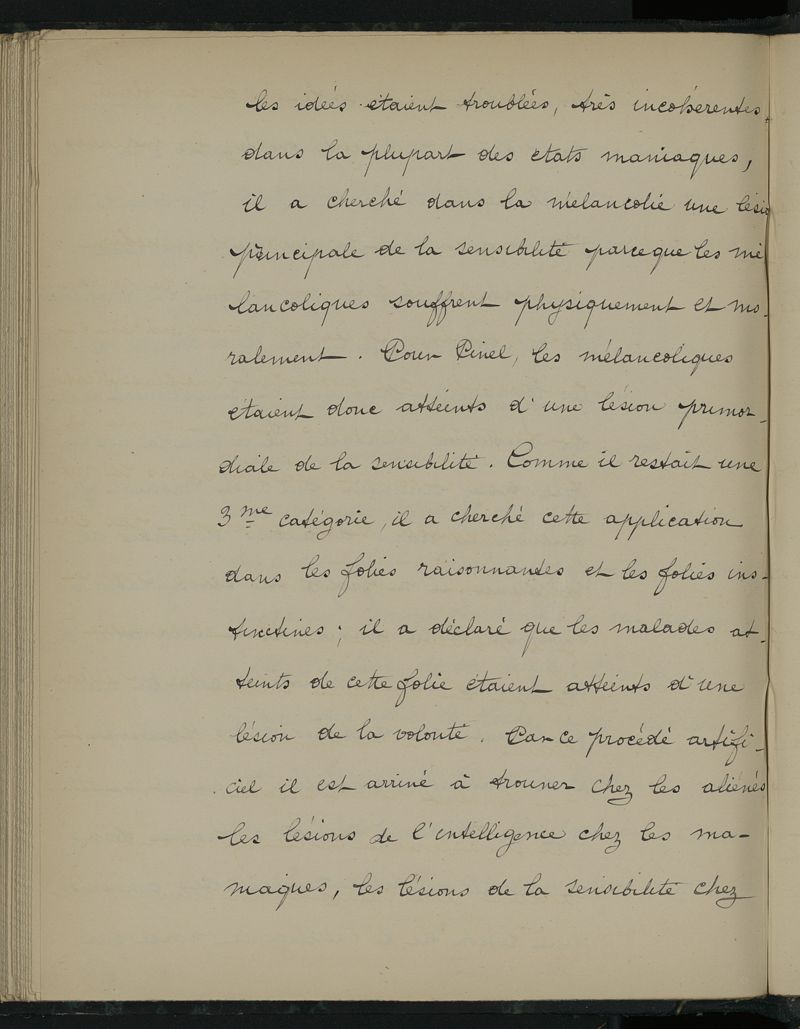 les idées étaient troublées, très incohérentes
dans la plupart des états maniaques,
il a cherché dans la mélancolie une lésion
principale de la sensibilité parceque les mé
lancoliques souffrent physiquement et mo-
ralement. Pour Pinel, les mélancoliques
étaient donc atteints d'une lésion primor-
diale de la sensibilité. Comme il restait une
3me catégorie, il a cherché cette application
dans les folies raisonnantes et les folies ins-
tinctives ; il a déclaré que les malades at-
teints de cette folie étaient atteints d'une
lésion de la volonté. Par ce procédé artifi-
ciel il est arrivé à trouver chez les aliénés
les lésions de l'intelligence chez les ma-
niaques, les lésions de la sensibilité chez